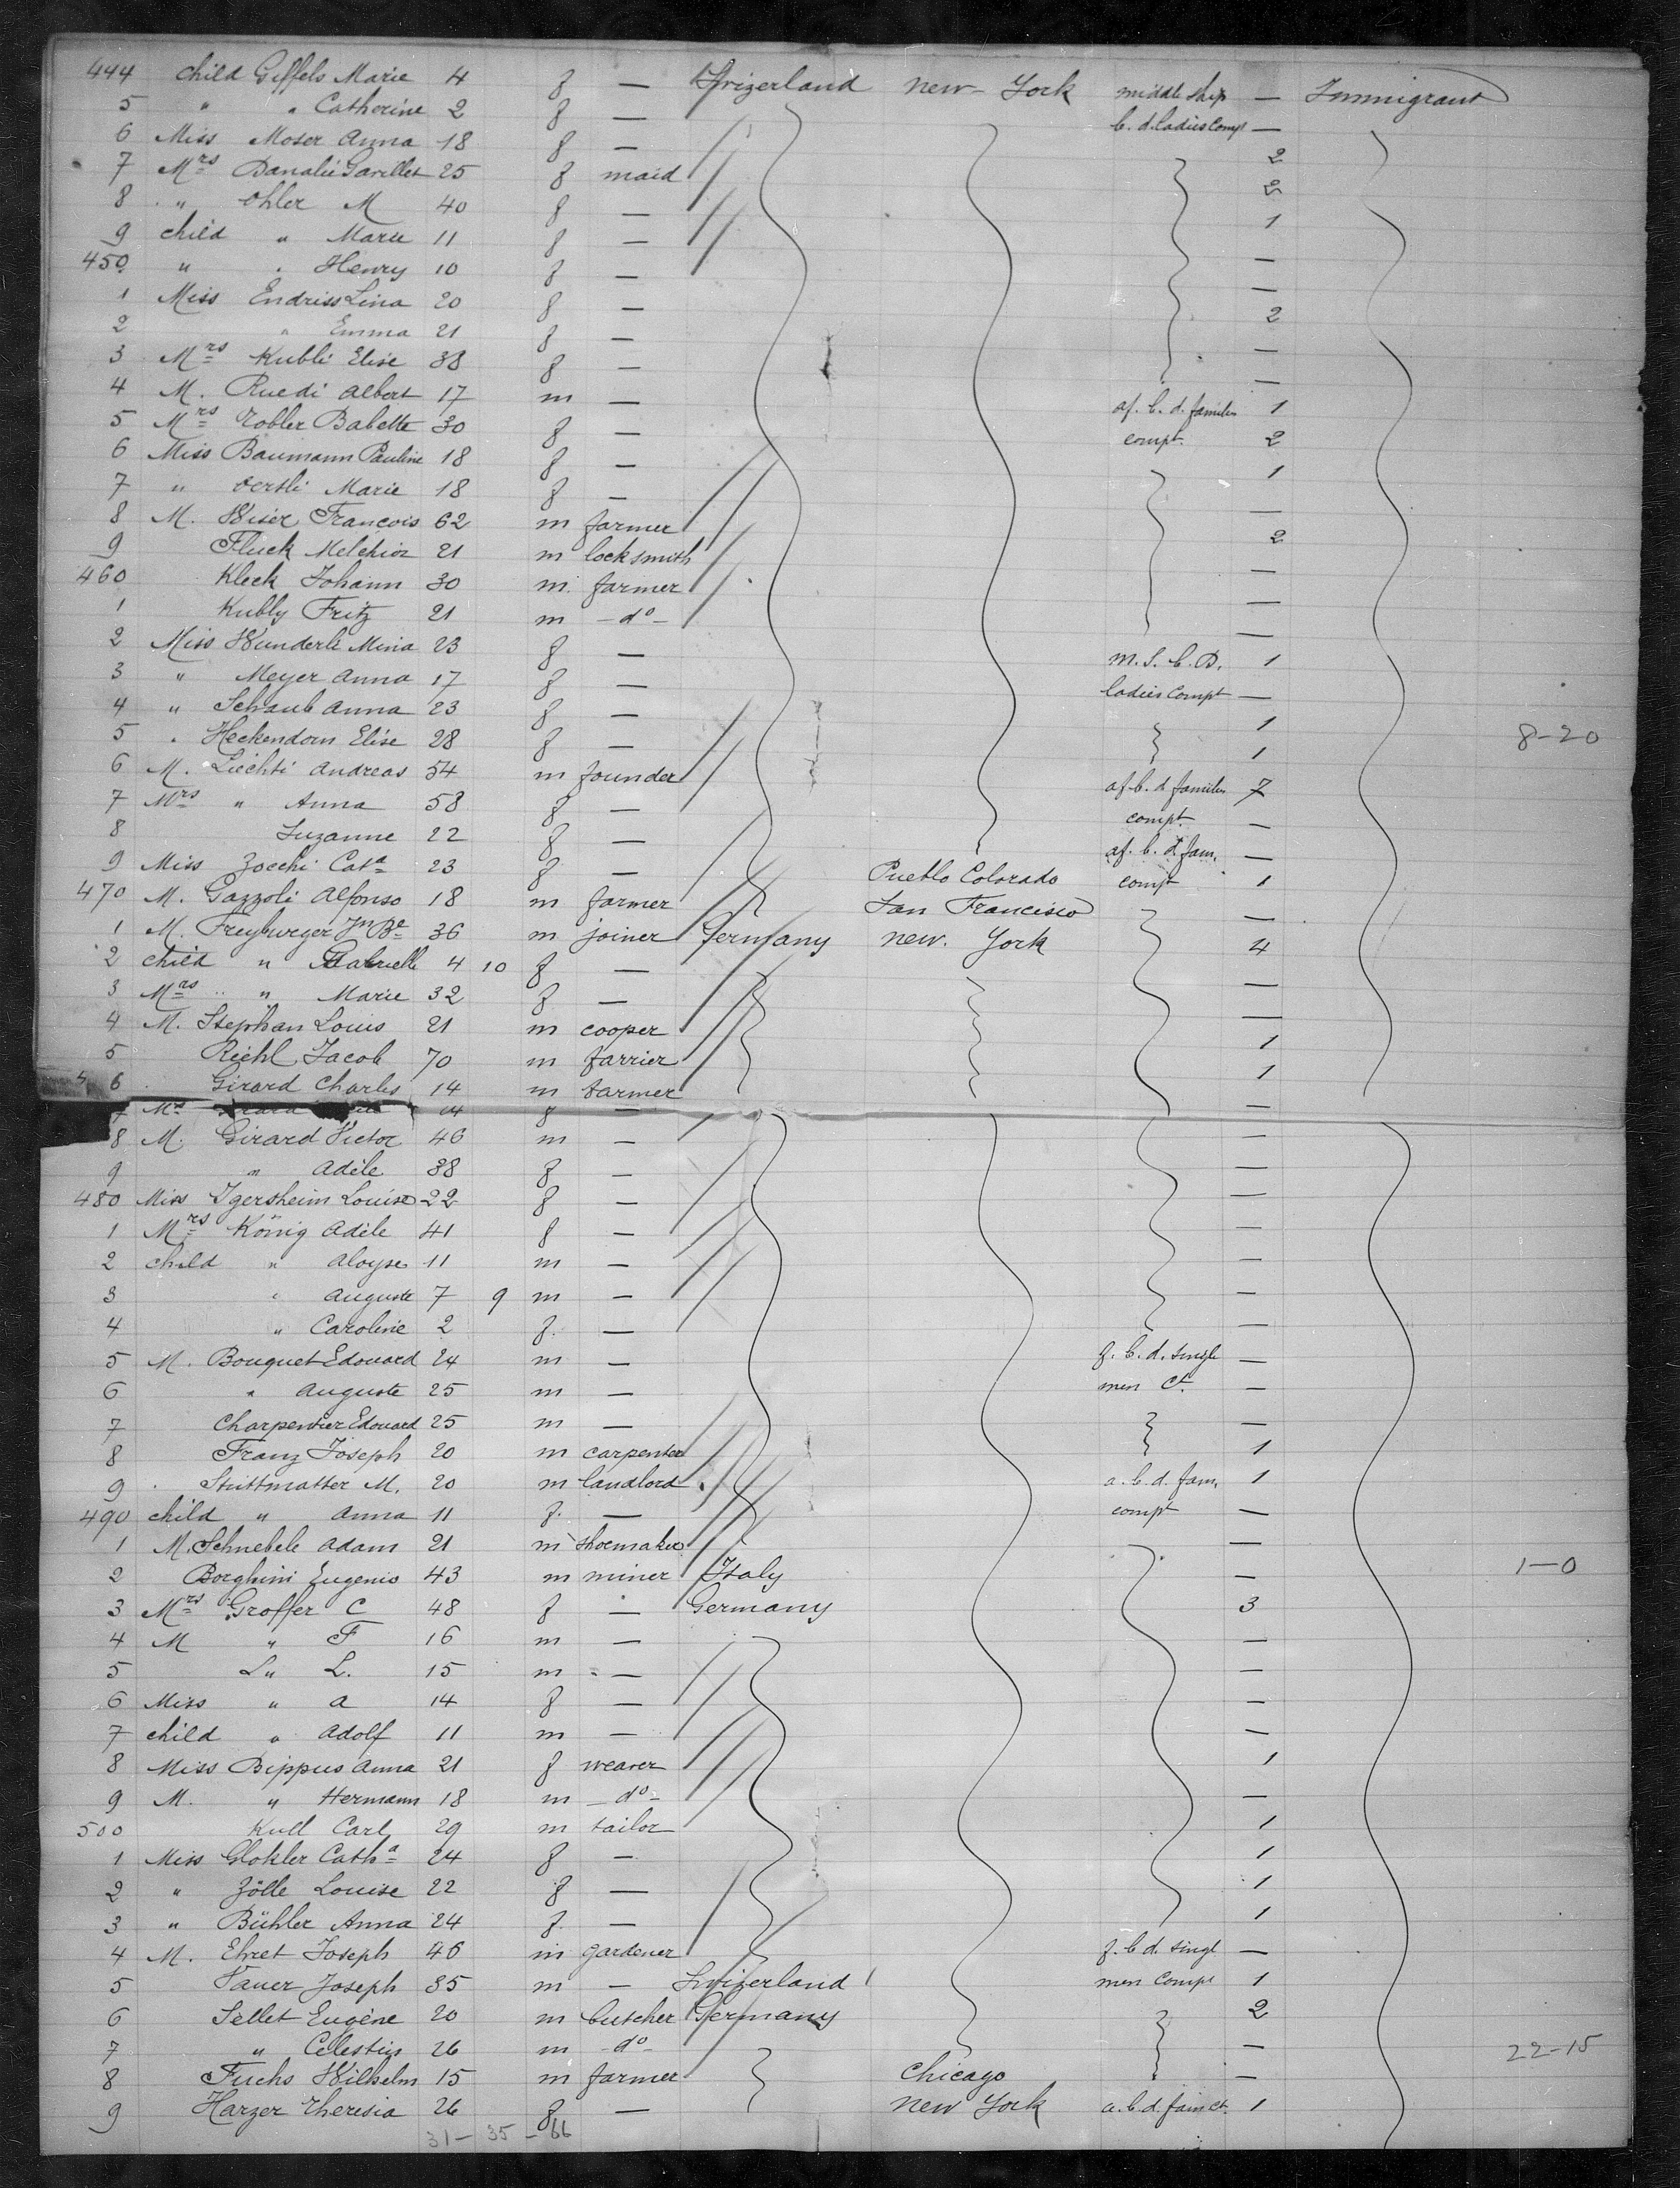 444 child Giffels Marie 4 f — Swizerland new-York middle ship — Immigrant
5 " " Catherine 2 f — b. d. Ladies Compt —
6 Miss Moser Anna 18 f — 2
7 Mrs Danalié Gavillet 25 f maid 2
8 " Ohler M 40 f — 1
9 child " Marie 11 f — —
450 " " Henry 10 f — —
1 Miss Endriss Lina 20 f — 2
2 " Emma 21 f — —
3 Mrs Kubli Elise 38 f — —
4 M. Ruedi Albert 17 m — af. b. d. families 1
5 Mrs Tobler Babette 30 f — compt. 2
6 Miss Baumann Pauline 18 f — 1
7 " Oertli Marie 18 f — —
8 M. Wiser Francois 62 m farmer 2
9 Fluck Melchior 21 m locksmith —
460 Kleck Johann 30 m. farmer —
1 Kubly Fritz 21 m -do- —
2 Miss Wunderli Mina 23 f — m. S. b. D. 1
3 " Meyer Anna 17 f — ladies Compt —
4 " Schaub Anna 23 f — 1
5 " Heckendorn Elise 28 f — 1 8-20
6 M. Liechti Andreas 54 m founder af b. d families 7
7 Mrs " Anna 58 f — compt. —
8 Suzanne 22 f — af. b. d. fam. —
9 Miss Zocchi Cata 23 f — Pueblo Colorado compt 1
470 M. Gazzoli Alfonso 18 m farmer San Francisco —
1 M. Freyburger Jn Be 36 m joiner Germany new. York 4
2 child " Gabrielle 4 10 f — —
3 Mrs " Marie 32 f — —
4 M. Stephan Louis 21 m cooper 1
5 Riehl Jacob 70 m farrier 1
6 Girard Charles 14 m farmer —
7 f —
8 M. Girard Victor 46 m — —
9 " Adèle 38 f — —
480 Miss Igersheim Louise 22 f — —
1 Mrs König Adèle 41 f — —
2 child " Aloyse 11 m — —
3 " Auguste 7 9 m — —
4 " Caroline 2 f. — —
5 M. Bouquet Edouard 24 m — f. b. d. single —
6 " Auguste 25 m — men Ct. —
7 Charpentier Edouard 25 m — —
8 Franz Joseph 20 m carpenter 1
9 Stuttmatter M. 20 m landlord a. b. d. fam. 1
490 child " Anna 11 f. — compt —
1 M. Schnebele Adam 21 m shoemaker —
2 Borghini Eugenio 43 m miner Italy — 1-0
3 Mrs Groffer C 48 f — Germany 3
4 M " F 16 m — —
5 " L. 15 m — —
6 Miss " A 14 f — —
7 child " Adolf 11 m — —
8 Miss Bippus Anna 21 f weaver 1
9 M. " Hermann 18 m -do- —
500 Kull Carl 29 m tailor 1
1 Miss Glokler Catha 24 f — 1
2 " Zölle Louise 22 f — 1
3 " Bühler Anna 24 f. — 1
4 M. Ehret Joseph 46 m gardener f. b d. singl —
5 Joseph 35 m — Swizerland men Compt 1
6 Sellet Eugène 20 m butcher Germany 2
7 " Celestin 26 m -do- — 22-15
8 Fuchs Wilhelm 15 m farmer Chicago —
9 Harzer Theresia 26 f — new York a. b. d. fam ct. 1
31 - 35 - 66